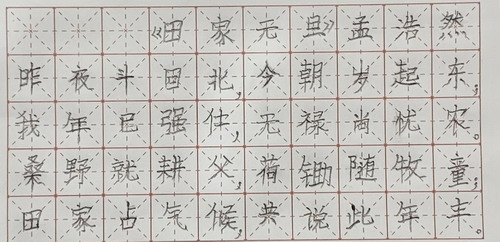 《田家元旦》孟浩然
昨夜斗回北,今朝岁起东;
我年已强仕,无禄尚忧农。
桑野就耕父,荷锄随牧童;
田家占气候,共说此年丰。